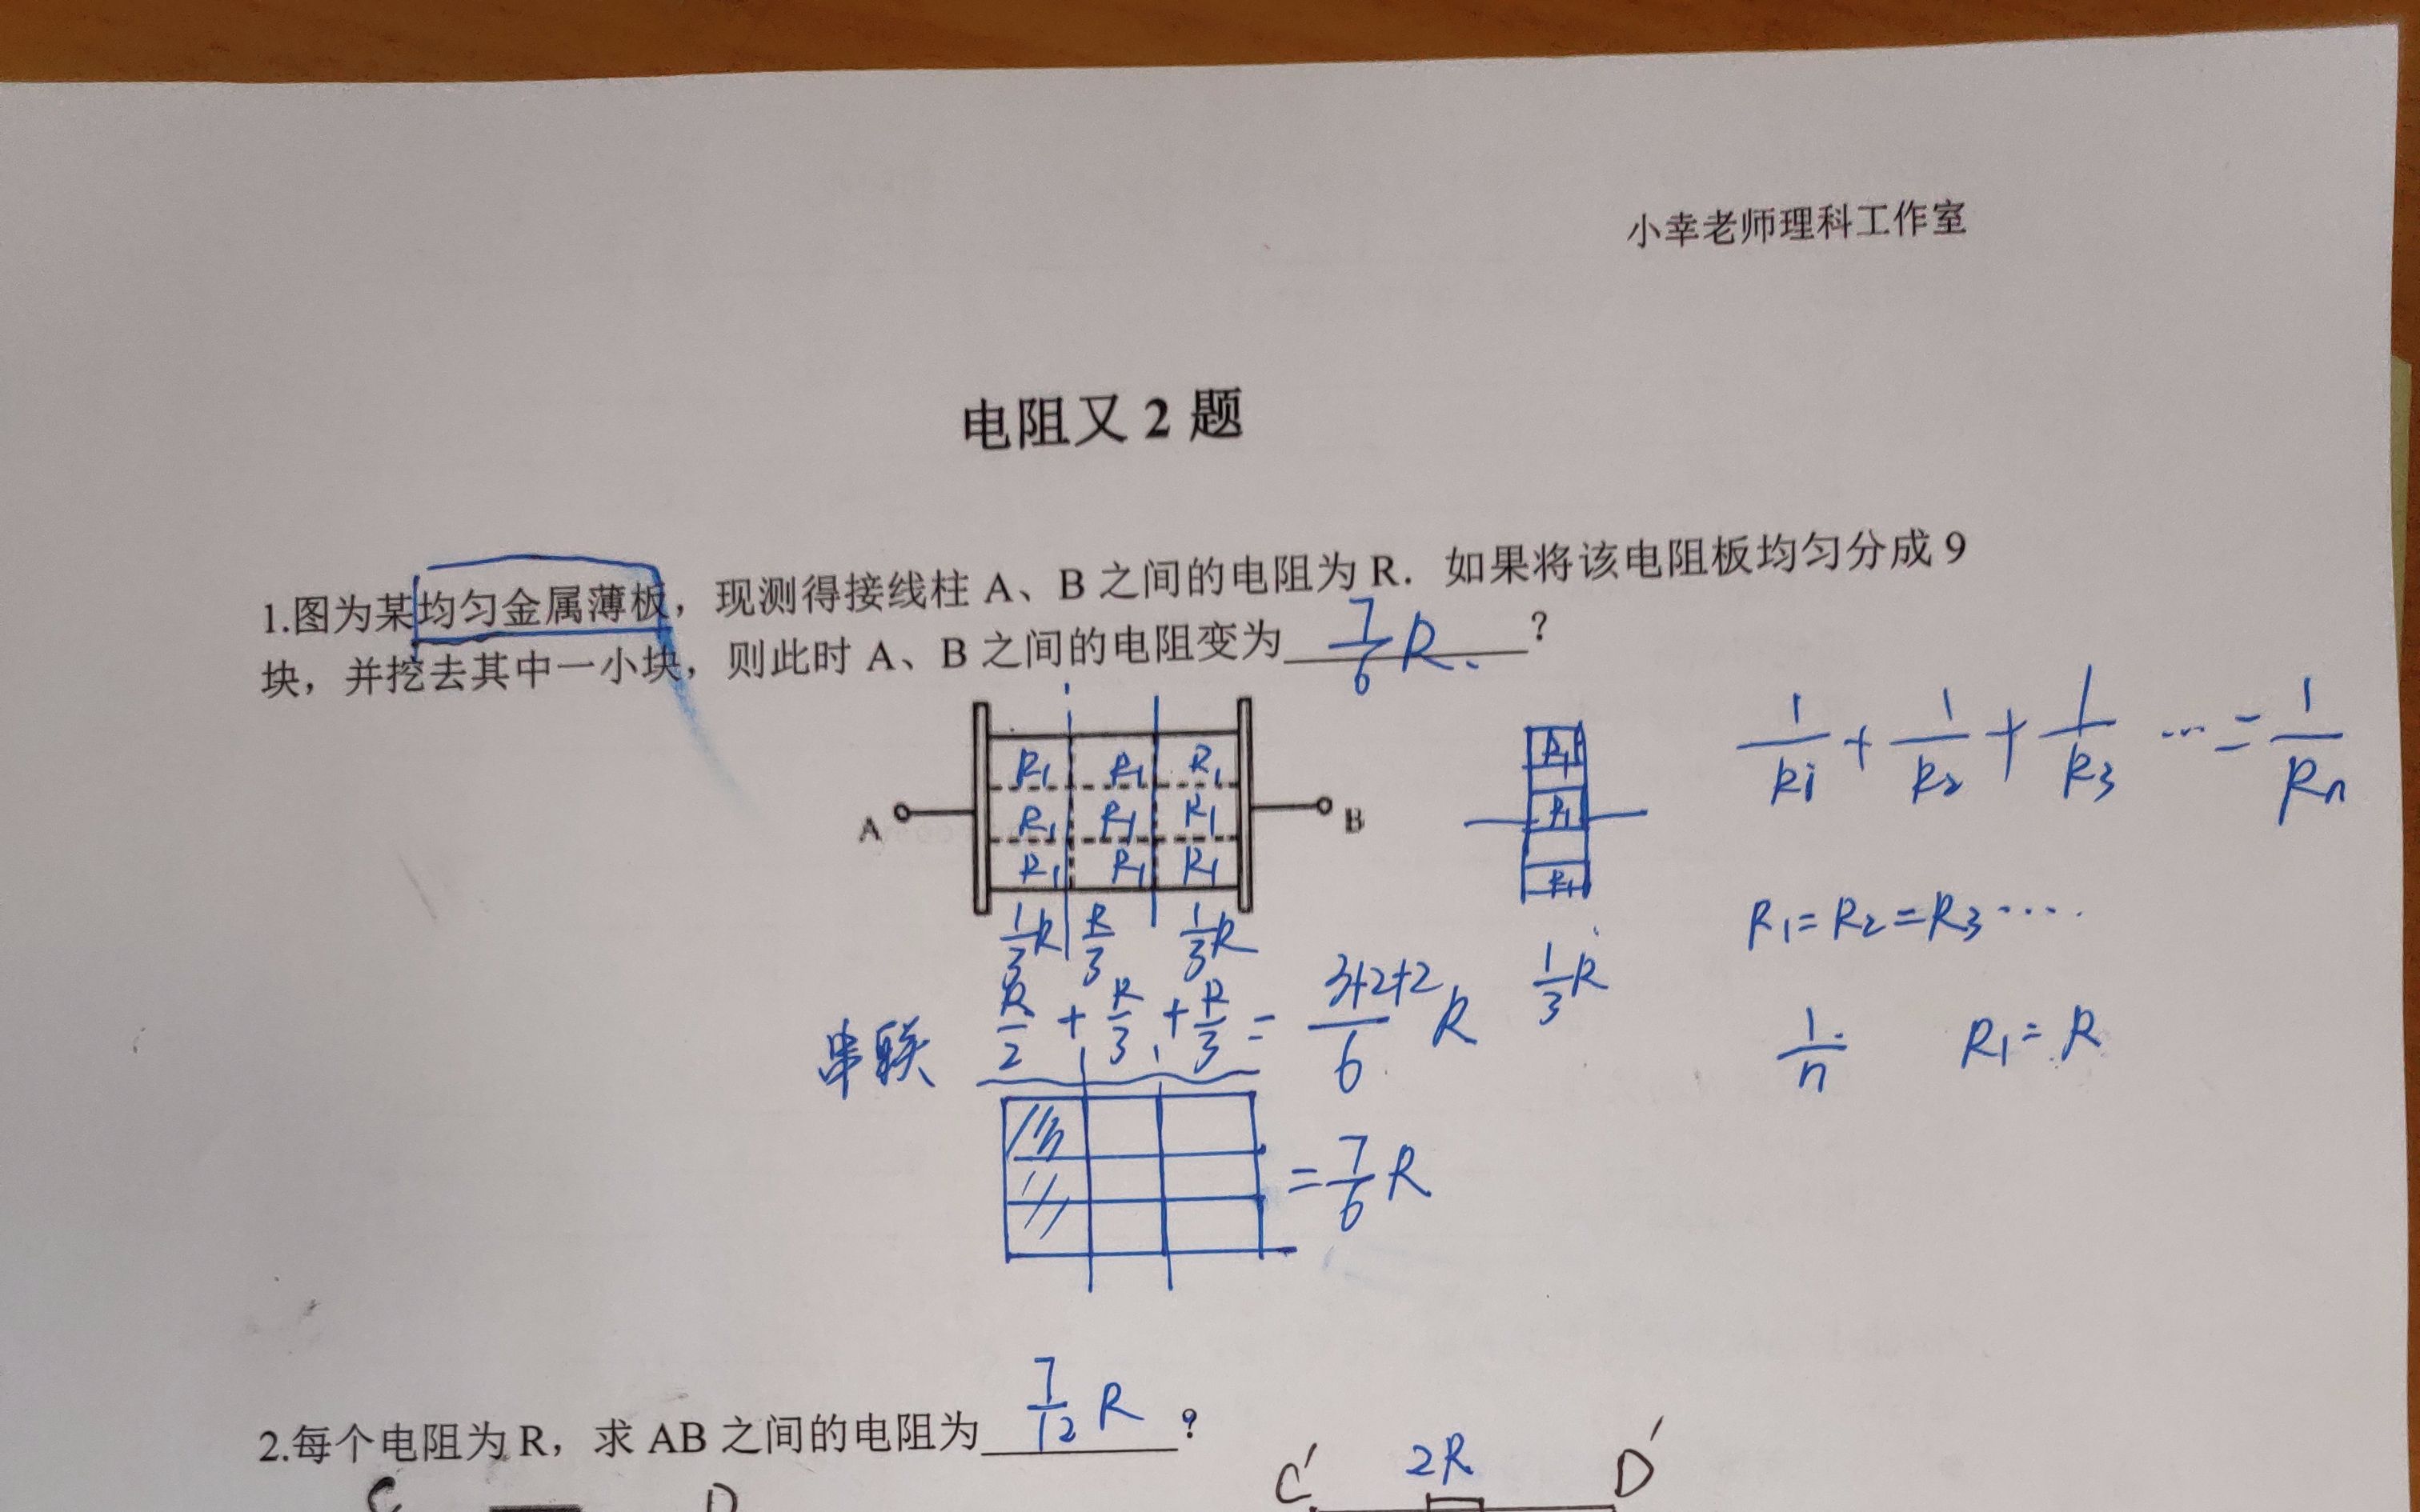 小幸老师理科工作室
电阻又 2 题
1.图为某均匀金属薄板，现测得接线柱 A、B 之间的电阻为 R．如果将该电阻板均匀分成 9
块，并挖去其中一小块，则此时 A、B 之间的电阻变为 7/6 R. ？
R₁ R₁ R₁
A R₁ R₁ R₁ B
R₁ R₁ R₁
1/3 R R/3 1/3 R
串联 R/2 + R/3 + R/3 = 3+2+2/6 R
= 7/6 R
R₁
R₁
R₁
1/3 R
1/R₁ + 1/R₂ + 1/R₃ … = 1/Rₙ
R₁=R₂=R₃….
1/n R₁=R
2.每个电阻为 R，求 AB 之间的电阻为 7/12 R ？
C D C′ 2R D′